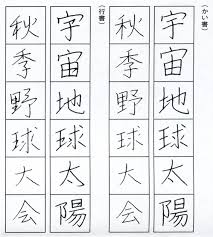 (かい書)
宇宙地球太陽
秋季野球大会
(行書)
宇宙地球太陽
秋季野球大会